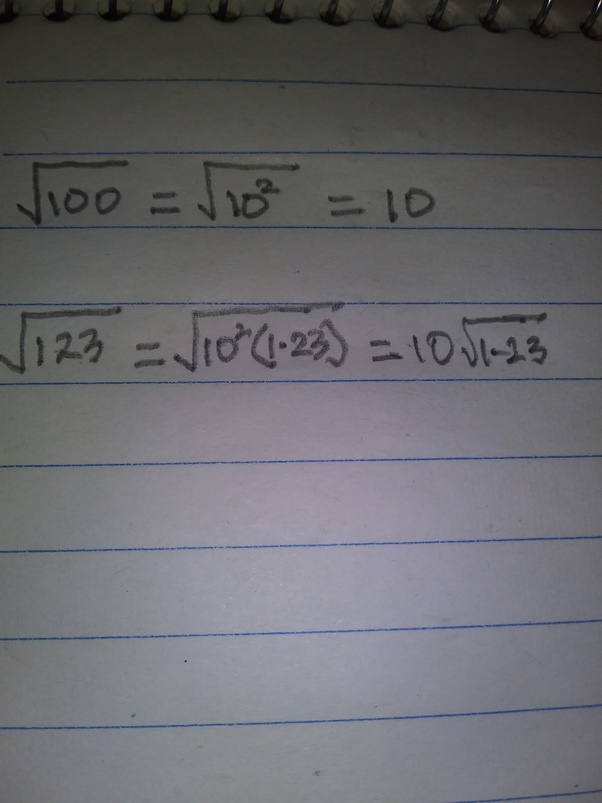 √100 = √10² = 10
√123 = √10²(1·23) = 10√1·23